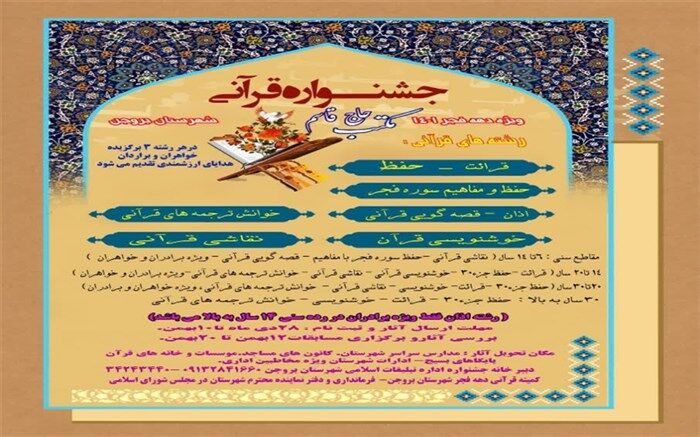 جشنواره قرآنی
مکتب حاج قاسم
ویژه دهه فجر ۱۴۰۱
شهرستان بروجن
رشته های قرآنی :
درهر رشته ۳ برگزیده
خواهران و برادران
هدایای ارزشمندی تقدیم می شود
قرائت _ حفظ
حفظ و مفاهیم سوره فجر
اذان - قصه گویی قرآنی
خوانش ترجمه های قرآنی
خوشنویسی قرآن
نقاشی قرآنی
مقاطع سنی : ۶ تا ۱۴ سال ( نقاشی قرآنی -حفظ سوره فجر با مفاهیم - قصه گویی قرآنی - ویژه برادران و خواهران )
۱۴ تا ۲۰ سال ( قرائت - حفظ جزء ۳۰ - خوشنویسی قرآنی - نقاشی قرآنی - خوانش ترجمه های قرآنی -ویژه برادران و خواهران )
۲۰ تا ۳۰ سال ( حفظ جزء ۳۰ - قرائت - خوشنویسی قرآنی - خوانش ترجمه های قرآنی ، ویژه خواهران و برادران )
۳۰ سال به بالا : حفظ جزء ۳۰ - قرائت - خوشنویسی - خوانش ترجمه های قرآنی
( رشته اذان فقط ویژه برادران در رده سنی ۱۴ سال به بالا می باشد )
مهلت ارسال آثار و ثبت نام : ۲۸ دی ماه تا ۱۰ بهمن.
بررسی آثار و برگزاری مسابقات ۱۲ بهمن تا ۲۰ بهمن.
مکان تحویل آثار : مدارس سراسر شهرستان، کانون های مساجد، موسسات و خانه های قرآن
پایگاهای بسیج - ادارات شهرستان ویژه مخاطبین اداری.
دبیر خانه جشنواره اداره تبلیغات اسلامی شهرستان بروجن ۰۹۱۳۲۸۴۱۶۶۰ - ۳۴۲۴۳۴۴۰
کمیته قرآنی دهه فجر شهرستان بروجن - فرمانداری و دفتر نماینده محترم شهرستان در مجلس شورای اسلامی